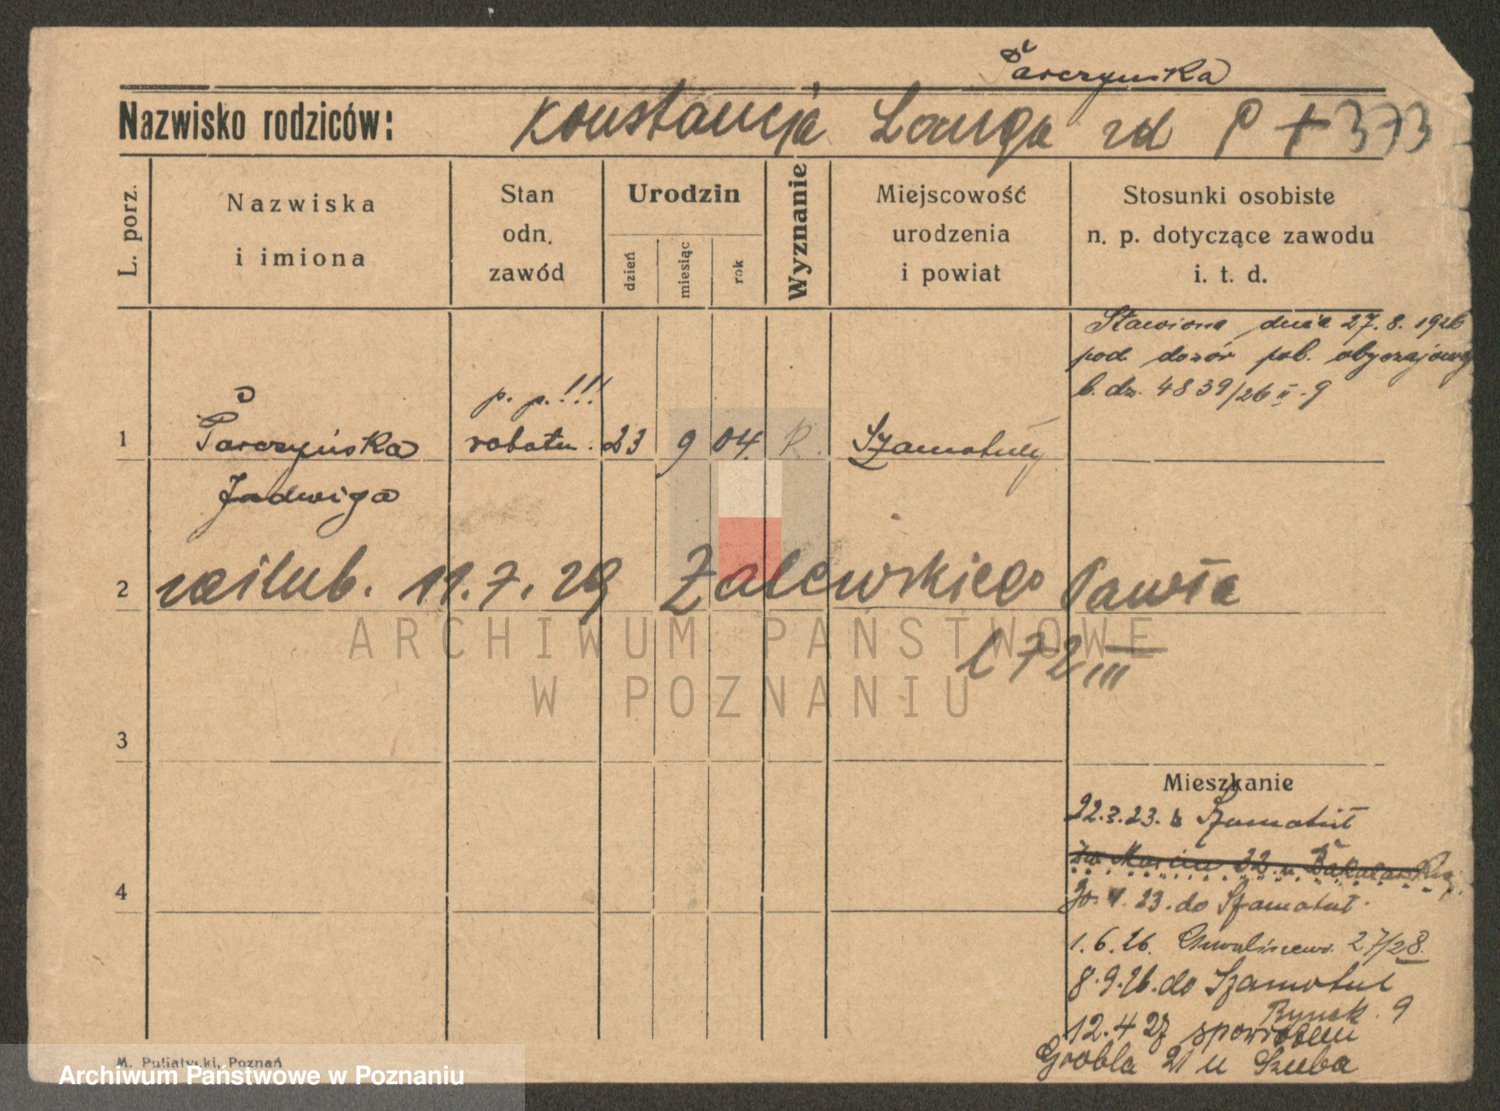 Parczyńska
Nazwisko rodziców: Konstancja Langa zd P + 373
L. porz.
Nazwiska
i imiona
Stan
odn.
zawód
Urodzin
dzień
miesiąc
rok
Wyznanie
Miejscowość
urodzenia
i powiat
Stosunki osobiste
n. p. dotyczące zawodu
i. t. d.
Stawiona dnia 27.8.1926
pod dozór pol. obyczajową
l. dz. 4839/26 II. 9
p. p.!!!
1 Parczyńska robotn. 23 9 04. R. Szamotuły
Jadwiga
2 zaślub. 11.7.29 Zalewskiego Pawła
ARCHIWUM PAŃSTWOWE
W POZNANIU
172 III
3
Mieszkanie
22.3.23. z Szamotuł
św. Marcin 22 u
4
23. do Szamotuł.
1.6.26. 27/28.
8.9.26. do Szamotuł
Rynek. 9
12.4 27 spowrotem
Grobla 21 u Szuba
M. Putiatycki, Poznań
Archiwum Państwowe w Poznaniu